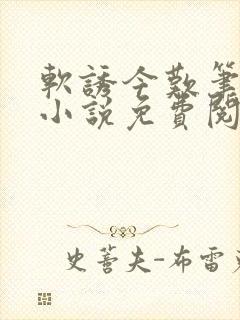 軟誘今歎筆
小說免費閱
史蒼夫-布雷